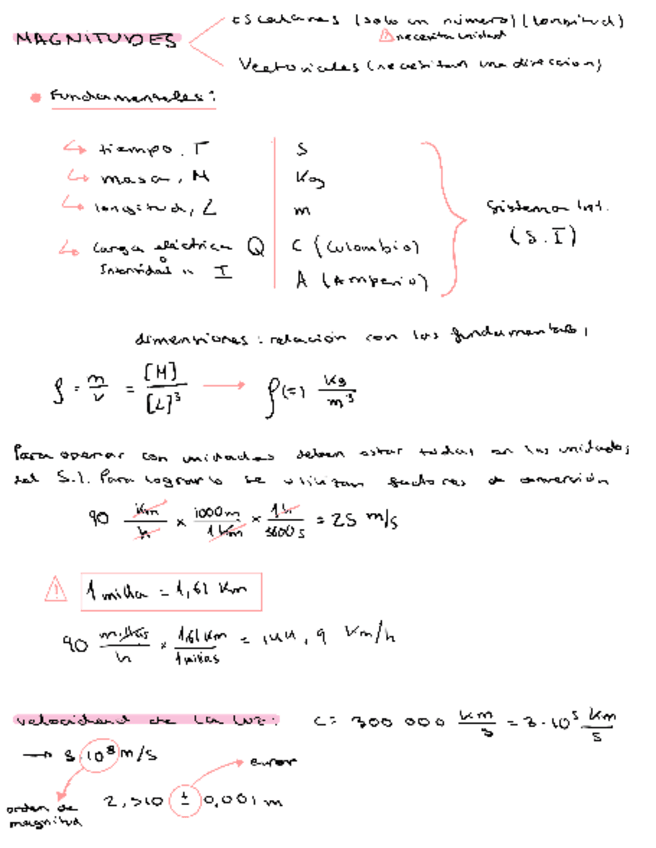 Escalares (solo un número) (longitud)
⚠ necesita unidad
MAGNITUDES
Vectoriales (necesitan una dirección)
• Fundamentales:
↳ tiempo, T | s
↳ masa, M | Kg
↳ longitud, L | m
Sistema Int.
(S.I)
↳ Carga eléctrica Q | C (Culombio)
o
Intensidad " I | A (Amperio)
dimensiones: relación con las fundamentales
ρ = m/v = [M]/[L]³ → ρ(=) Kg/m³
Para operar con unidades deben estar todas en las unidades
del S.I. Para lograrlo se utilizan factores de conversión
90 Km/h × 1000m/1Km × 1h/3600s = 25 m/s
⚠ 1 milla = 1,61 Km
90 millas/h × 1,61 Km/1 millas = 144,9 Km/h
velocidad de la luz: C = 300 000 Km/s = 3·10⁵ Km/s
→ 3 10⁸ m/s
error
orden de
magnitud
2,510 ± 0,001 m